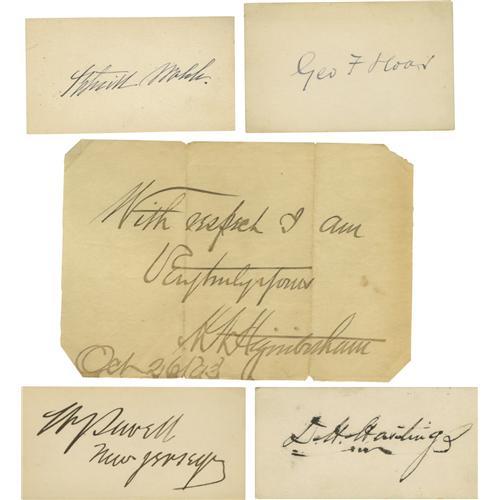 Patrick Walsh.
Geo F Hoar
With respect I am
Very truly yours
H N Higinbotham
Oct 26 1893
W J Sewell
New Jersey
D. H. Hastings